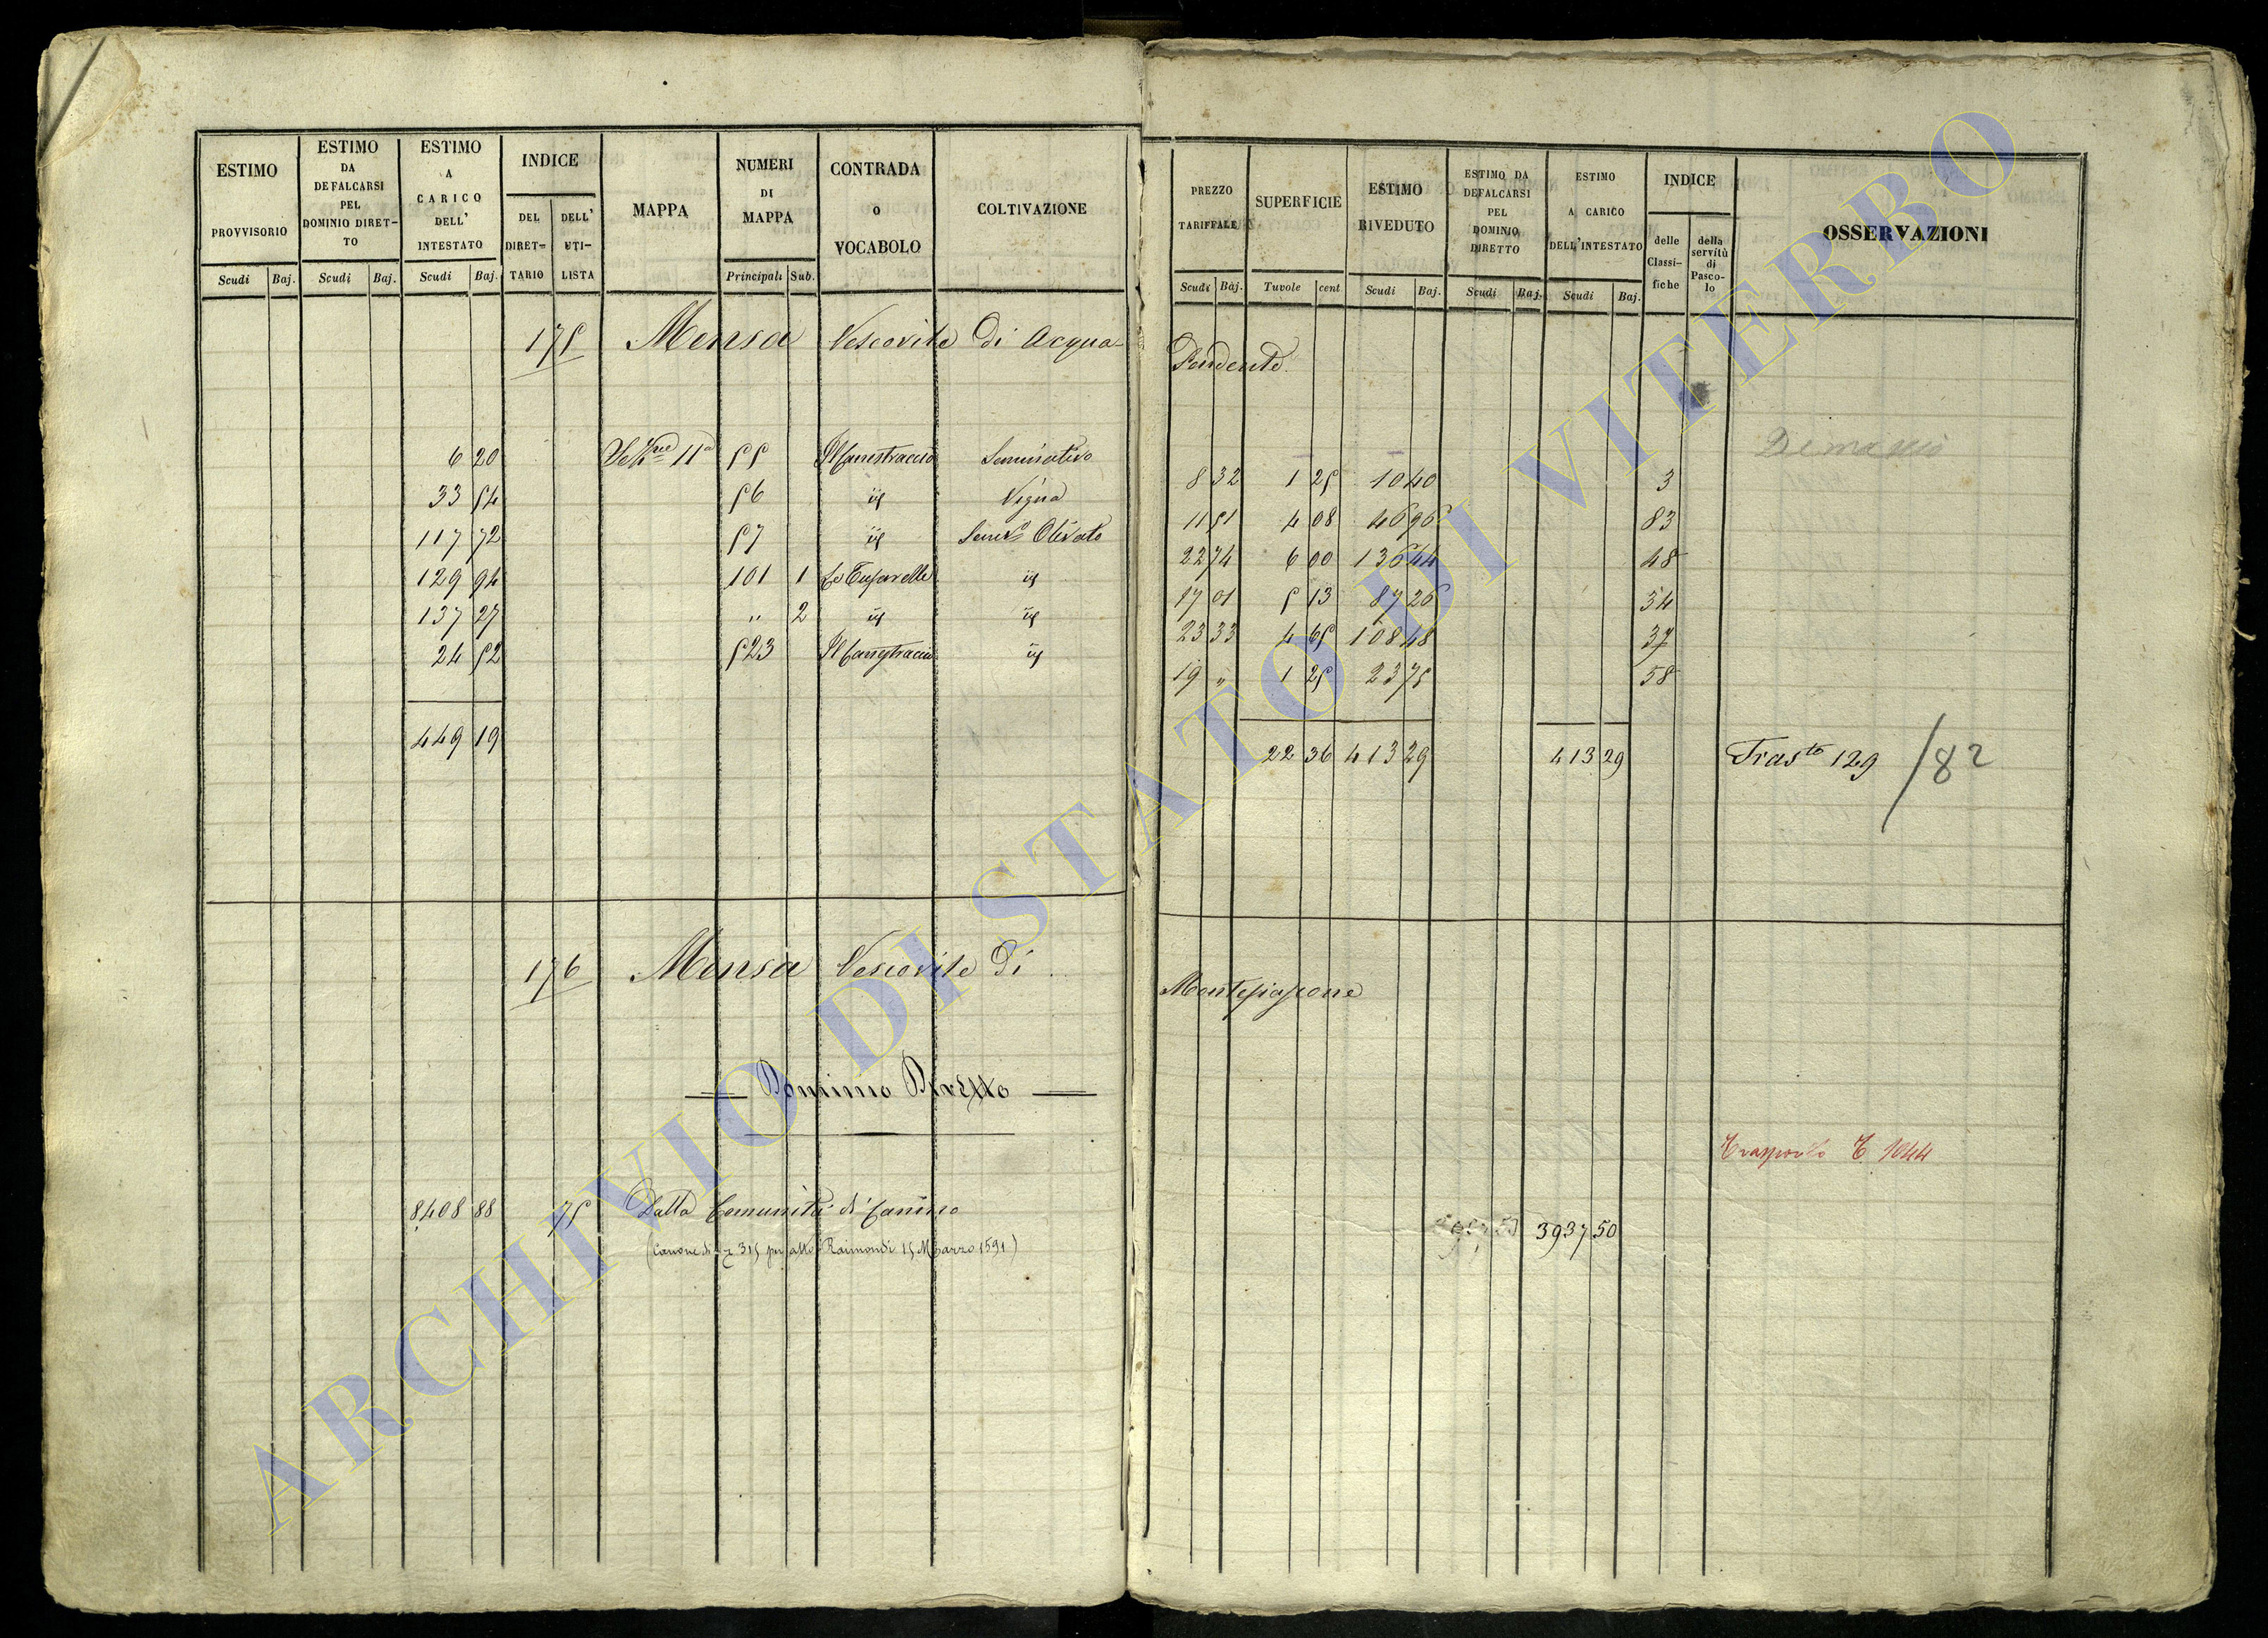 ESTIMO PROVVISORIO
Scudi Baj.
ESTIMO DA DEFALCARSI PEL DOMINIO DIRETTO
Scudi Baj.
ESTIMO A CARICO DELL' INTESTATO
Scudi Baj.
INDICE
DEL DIRETTARIO
DELL' UTILISTA
MAPPA
NUMERI DI MAPPA
Principali Sub.
CONTRADA O VOCABOLO
COLTIVAZIONE
PREZZO TARIFFALE
Scudi Baj.
SUPERFICIE
Tavole cent
ESTIMO RIVEDUTO
Scudi Baj.
ESTIMO DA DEFALCARSI PEL DOMINIO DIRETTO
Scudi Baj.
ESTIMO A CARICO DELL'INTESTATO
Scudi Baj.
INDICE
delle Classifiche
della servitù di Pascolo
OSSERVAZIONI
175 Mensa Vescovile di Acquapendente
6 20 Sezne 11a 55 Il Canestraccio Seminativo 8 32 1 25 10 40 3
33 54 56 id Vigna 11 51 4 08 46 96 83
117 72 57 id Semvo Olivato 22 74 6 00 136 44 48
129 94 101 1 Le Tufarelle id 17 01 5 13 87 26 54
137 27 " 2 id id 23 33 4 65 108 48 37
24 52 523 Il Canestraccio id 19 " 1 25 23 75 58
449 19 22 36 413 29 413 29 Trasto 129 /82
176 Mensa Vescovile di Montefiascone
Dominio Diretto
Trasporto C 1044
8408 88 75 Dalla Comunità di Canino 3937 50
(Canone di 315 per atto Raimondi 15 Marzo 1591)
ARCHIVIO DI STATO DI VITERBO